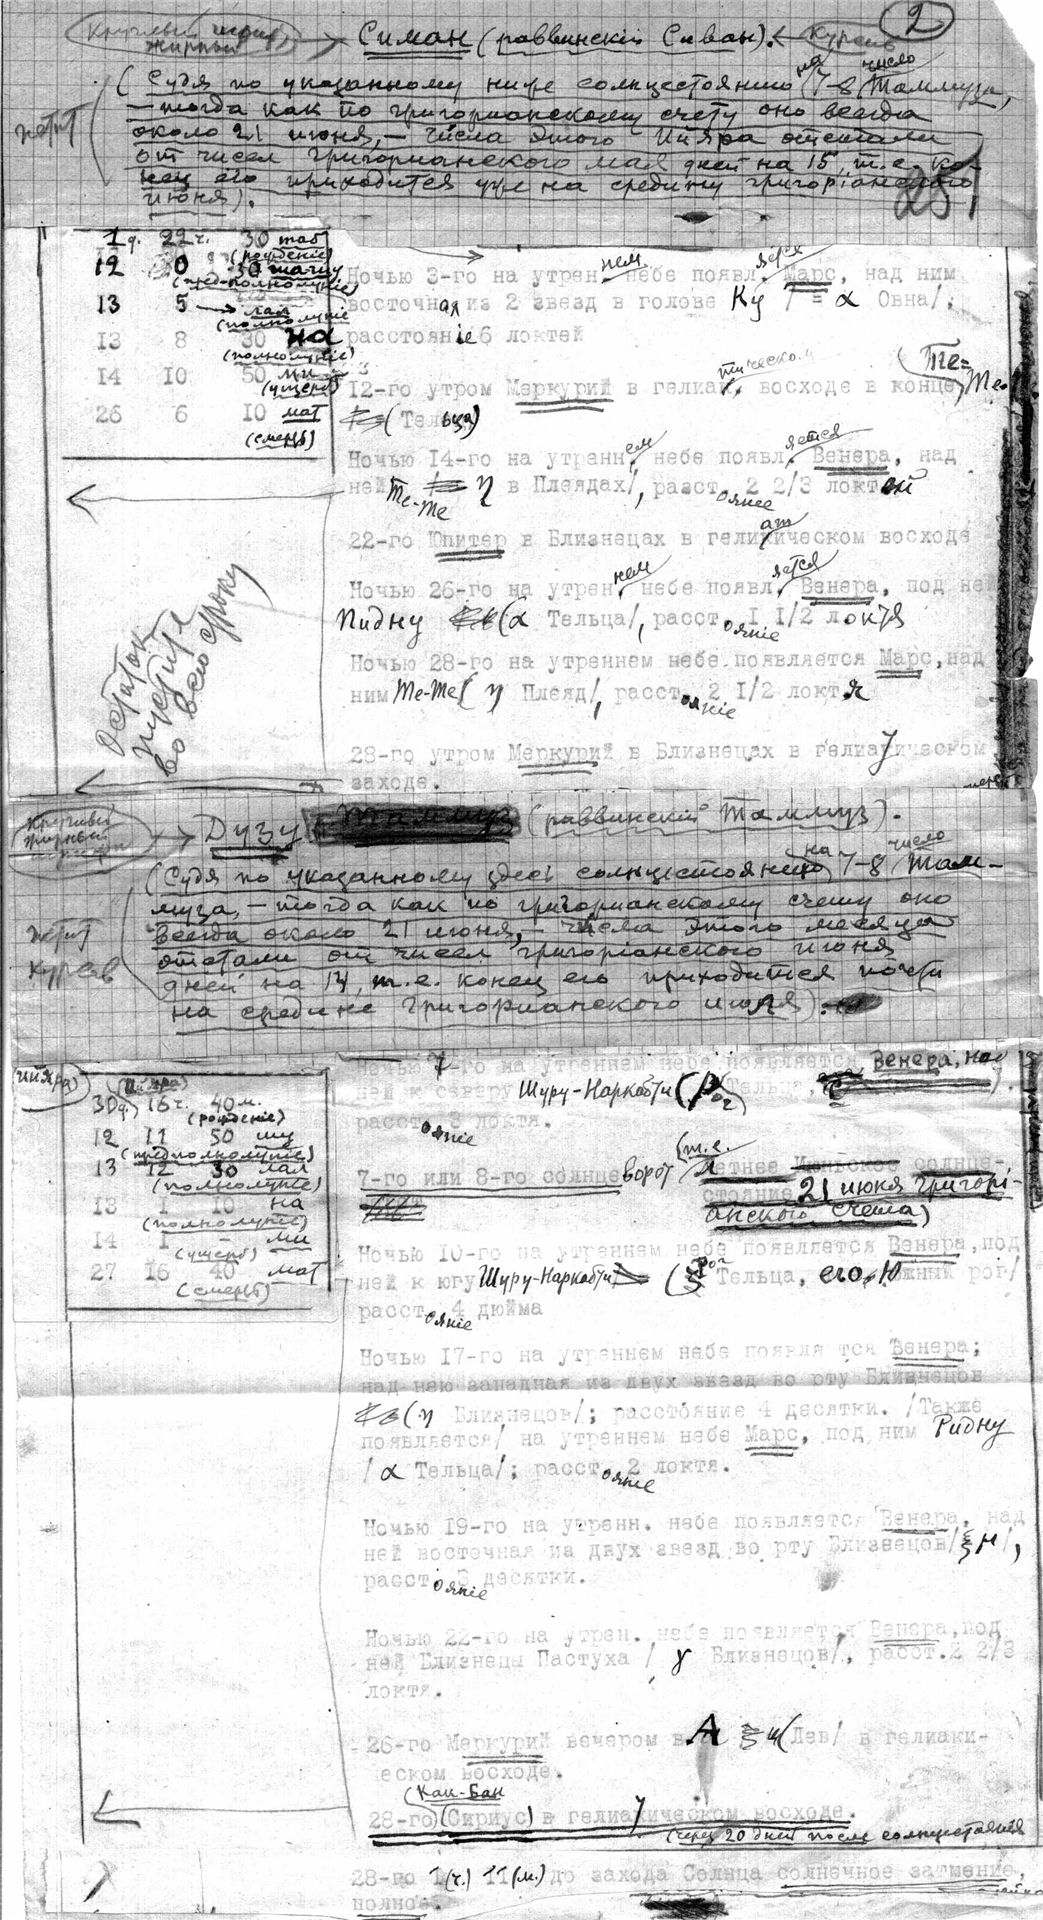 2
Круглый
жирный
Симан (раввинскій Сиван).
Курсив
(Судя по указанному ниже солнцестоянию на 7-8 число Таммуза,
— тогда как по григорианскому счету оно всегда
около 21 июня, — числа этого Ийяра отстали
от чисел григорианского мая дней на 15, т.е. ко-
нец его приходится уже на средину григоріанского
июня).
петит
251
1 д. 22 ч. 30 таб
(рожденіе)
12 0 30
(пред-полнолуніе)
13 5 лал
(полнолуніе
13 8 30 на
(полнолуніе)
14 10 50 ми
(ущерб)
26 6 10 мат
(смерть)
Ночью 3-го на утреннем небе появляется Марс, над ним
восточная из 2 звезд в голове Ку / = α Овна/;
расстояніе 6 локтей
12-го утром Меркурий в гелиактическом восходе в конце Те-Те
(Тельца)
Ночью 14-го на утреннем небе появляется Венера, над
ней Те-Те η в Плеядах/, расстояніе 2 2/3 локтей
22-го Юпитер в Близнецах в гелиатическом восходе
Ночью 26-го на утреннем небе появляется Венера, под не
Пидну (α Тельца/, расстояніе 1 1/2 локтя
Ночью 28-го на утреннем небе появляется Марс, над
ним Те-Те ( η Плеяд/, расстояніе 2 1/2 локтя
28-го утром Меркурий в Близнецах в гелиакическом
заходе.
Остаток
пустите
во всю строку
Круглый
жирный
Дузу (раввинскій Таммуз).
(Судя по указанному здесь солнцестоянию на 7-8 число Там-
муза, — тогда как по григорианскому счету оно
всегда около 21 июня, — числа этого месяца
отстали от чисел григоріанского июня
дней на 14, т.е. конец его приходится почти
на средине григорианского июля).
петит
курсив
(Ийяра)
30 д. 16 ч. 40 м.
(рожденіе)
12 11 50 шу
(предполнолуніе)
13 12 30 лал
(полнолуніе)
13 1 10 на
(полнолуніе)
14 1 - ми
(ущерб)
27 16 40 мат
(смерть)
Ночью 7-го на утреннем небе появляется Венера, над
ней к северу Шуру-Наркабти ( Рог Тельца,
расстояніе 3 локтя.
7-го или 8-го солнцеворот (т.е. летнее солнце-
стояние 21 июня григорі-
анского счета)
Ночью 10-го на утреннем небе появляется Венера, под
ней к югу Шуру-Наркабти (ζ рог Тельца, его южный рог/
расстояніе 4 дюйма
Ночью 17-го на утреннем небе появляется Венера;
над нею западная из двух звезд во рту Близнецов
(η Близнецов/; расстояние 4 десятки. /Также
появляется/ на утреннем небе Марс, под ним Ридну
/ α Тельца/; расстояніе 2 локтя.
Ночью 19-го на утренн. небе появляется Венера, над
ней восточная из двух звезд во рту Близнецов/ μ/,
расстояніе 3 десятки.
Ночью 22-го на утрен. небе появляется Венера, под
ней Близнецы Пастуха / γ Близнецов/, расст. 2 2/3
локтя.
26-го Меркурий вечером в А (Лев/ в гелиаки-
ческом восходе.
(Как-Бан
28-го (Сириус) в гелиакическом восходе.
(через 20 дней после солнцестояния
28-го 1 (ч.) 11 (м.) до захода Солнца солнечное затмение,
полное.